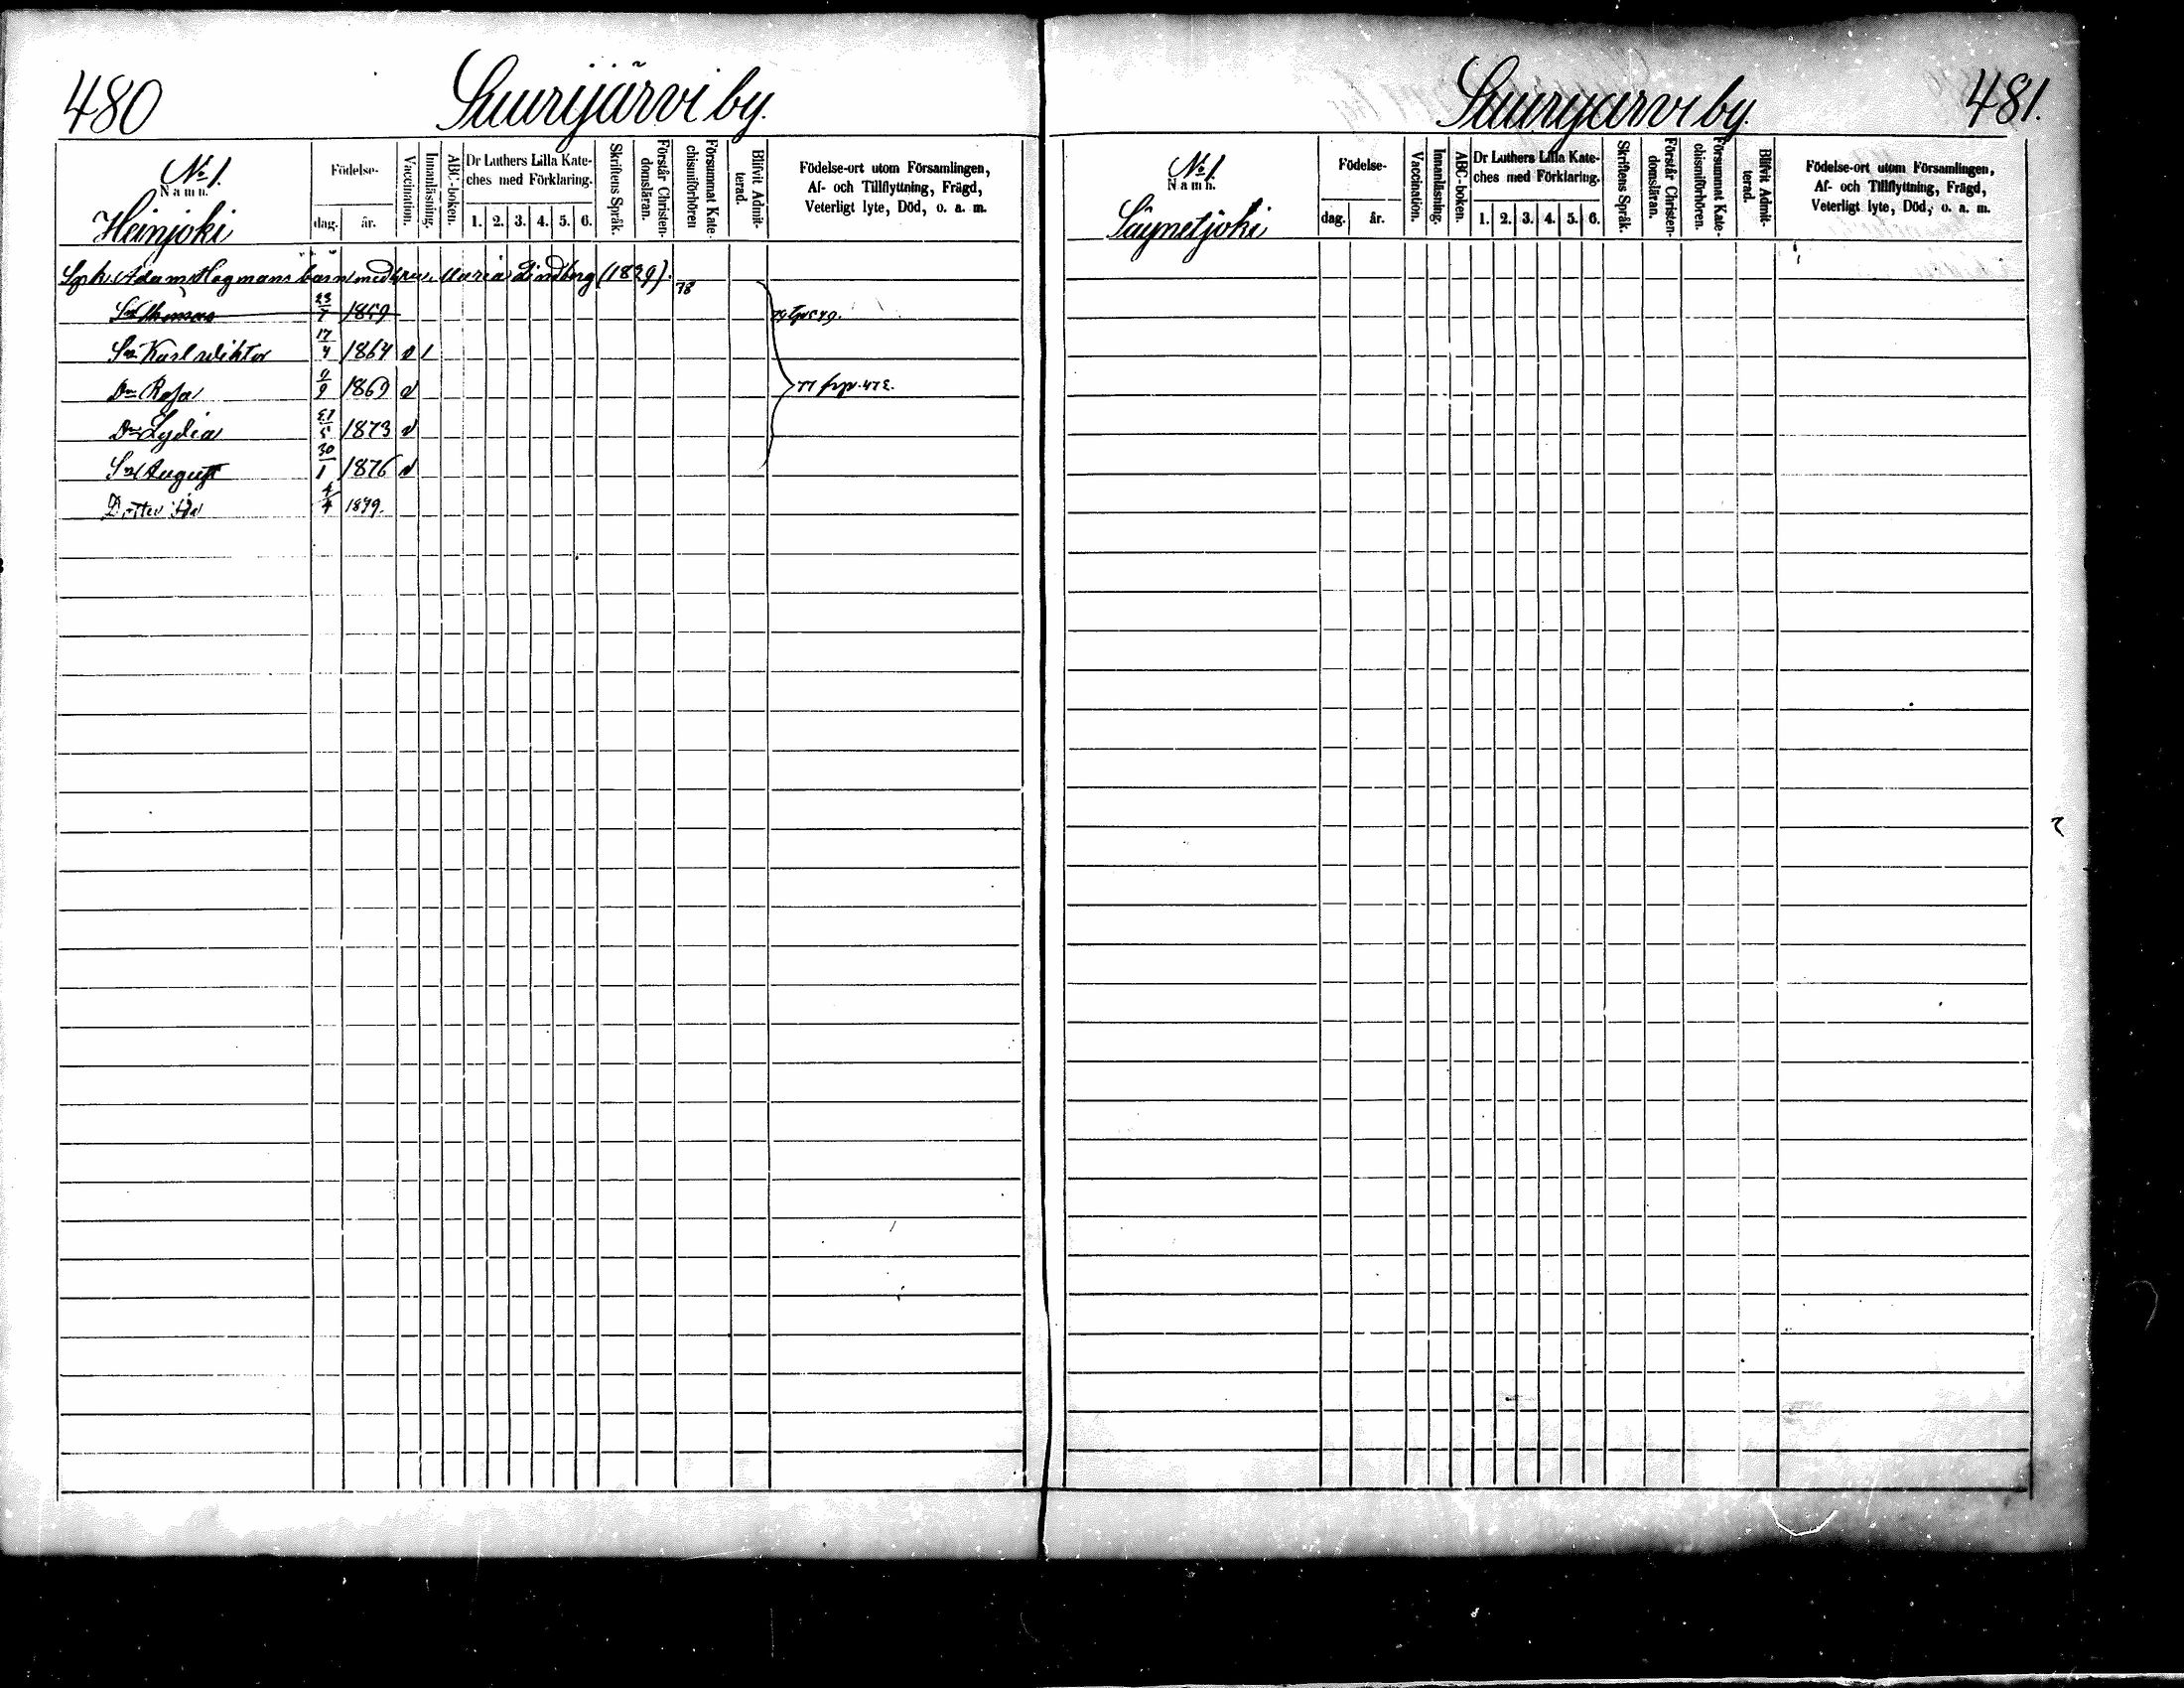 480
Suurijärvi by.
No 1.
Namn.
Heinjoki
Födelse-
dag.
år.
Vaccination.
Innanläsning.
ABC-boken.
Dr Luthers Lilla Kate-
ches med Förklaring.
1. 2. 3. 4. 5. 6.
Skriftens Språk.
Förstår Christen-
domsläran.
Försummat Kate-
chismiförhören
Blifvit Admit-
terad.
Födelse-ort utom Församlingen,
Af- och Tillflyttning, Frägd,
Veterligt lyte, Död, o. a. m.
Adam Hagmans barn med Maria Lindberg (1839). 78
Sn 23/7 1859
Sn Karl Wiktor 17/4 1864 v 1
Dr Rosa 9/9 1869 v
Dr Lydia 1873 v
Sn August 30/1 1876 v
Dotter 4/4 1879.
481.
Suurijärvi by.
No 1.
Namn.
Säynetjoki
Födelse-
dag.
år.
Vaccination.
Innanläsning.
ABC-boken.
Dr Luthers Lilla Kate-
ches med Förklaring.
1. 2. 3. 4. 5. 6.
Skriftens Språk.
Förstår Christen-
domsläran.
Försummat Kate-
chismiförhören.
Blifvit Admit-
terad.
Födelse-ort utom Församlingen,
Af- och Tillflyttning, Frägd,
Veterligt lyte, Död, o. a. m.